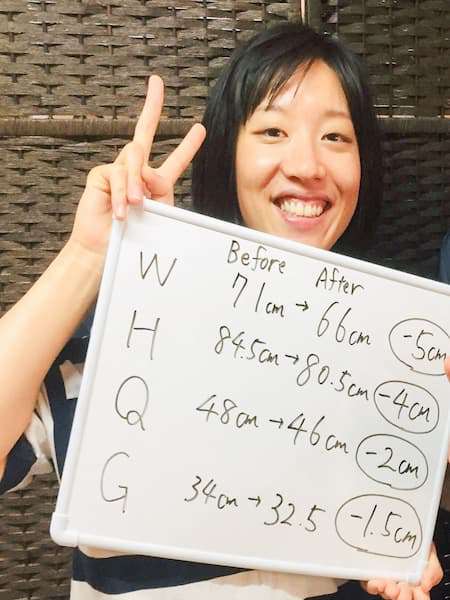 Before After
W 71cm → 66cm -5cm
H 84.5cm → 80.5cm -4cm
Q 48cm → 46cm -2cm
G 34cm → 32.5 -1.5cm